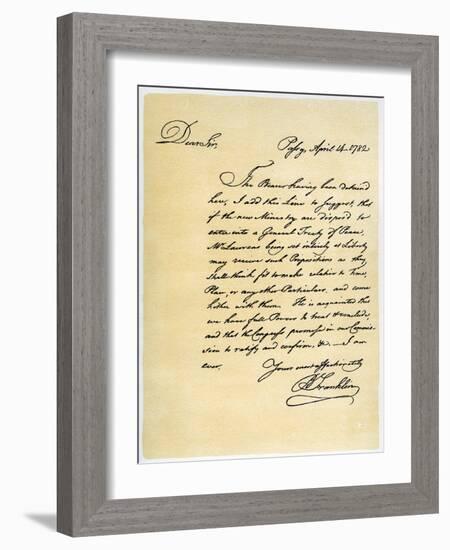 Dear Sir,
Passy, April 14. 1782
The Bearer having been detained
here, I add this Line to suggest, that
if the new Ministry are disposed to
enter into a General Treaty of Peace,
Mr Laurens being set intirely at Liberty
may receive such Propositions as they
shall think fit to make relative to Time,
Place, or any other Particulars, and come
hither with them. He is acquainted that
we have full Powers to treat & conclude,
and that the Congress promise in our Commis-
sion to ratify and confirm, &c — I am
ever,
Yours most affectionately
B Franklin